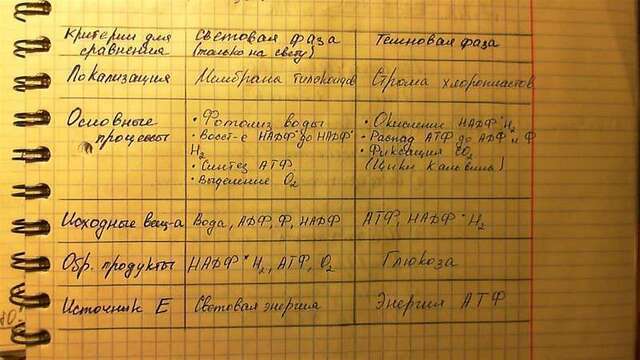 Критерии для сравнения
Световая фаза (только на свету)
Темновая фаза
Локализация
Мембрана тилокоидов
Строма хлоропластов
Основные процессы
• Фотолиз воды
• Восст-е НАДФ⁺ до НАДФ*
H₂
• Синтез АТФ
• Выделение O₂
• Окисление НАДФ*H₂
• Распад АТФ до АДФ и Ф
• Фиксация CO₂
(Цикл Кальвина)
Исходные вещ-а
Вода, АДФ, Ф, НАДФ
АТФ, НАДФ*H₂
Обр. продукты
НАДФ*H₂, АТФ, O₂
Глюкоза
Источник E
Световая энергия
Энергия АТФ